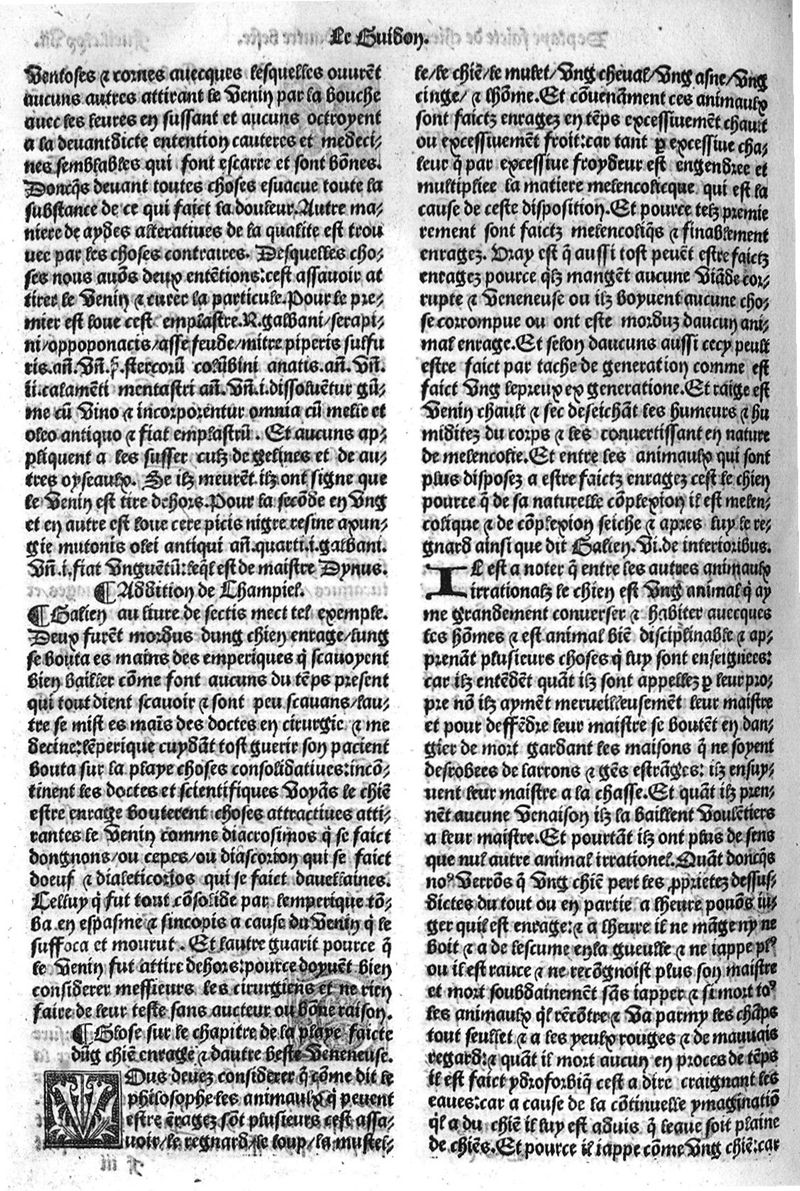 Le Guidon.
Ventoses ⁊ cornes auecques lesquelles ouurẽt
aucuns autres attirant le venin par la bouche
auec les leures en sussant et aucuns octroyent
a la deuantdicte entention cauteres et medeci-
nes semblables qui font escarre et sont bõnes.
Doncq̃s deuant toutes choses esuacue toute la
substance de ce qui faict la douleur. Autre ma-
niere de aydes alteratiues de la qualite est trou
uee par les choses contraires. Desquelles cho-
ses nous auõs deux entẽtions: cest assauoir at
tirer le venin ⁊ curer la particule. Pour le pre-
mier est loue cest emplastre. R. galbani/serapi-
ni/oppoponacis/asse feude/mitre piperis sulfu
ris. añ. Vñ. stercorũ colũbini anatis. añ. Vñ.
ii. calamẽti mentastri añ. Vñ. i. dissoluẽtur gũ-
me cũ vino ⁊ incorporentur omnia cũ melle et
oleo antiquo ⁊ fiat emplastrũ. Et aucuns ap-
pliquent a les susser culz de gelines et de au-
tres oyseaulx. Se ilz meurẽt. ilz ont signe que
le venin est tire dehors. Pour la secõde en vng
et en autre est loue cere picis nigre resine axun-
gie mutonis olei antiqui añ. quarti. i. galbani.
Vñ. i. fiat vnguentũ: leq̃l est de maistre Dynus.
¶ Addition de Champiel.
¶ Galien au liure de sectis mect tel exemple.
Deux furẽt mordus dung chien enrage/lung
se bouta es mains des emperiques q̃ scauoyent
bien bailler cõme font aucuns du tẽps present
qui tout dient scauoir ⁊ sont peu scauans/lau-
tre se mist es maĩs des doctes en cirurgie ⁊ me
decine: lẽperique cuydãt tost guerir son pacient
bouta sur la playe choses consolidatiues: incõ-
tinent les doctes et scientifiques voyãs le chiẽ
estre enrage bouterent choses attractiues atti-
rantes le venin comme diacrosimos q̃ se faict
dongnons/ou cepes/ou diascordon qui se faict
doeuf ⁊ dialeticorios qui se faict dauellaines.
Celluy q̃ fut tout cõsolide par lemperique tõ-
ba en espasme ⁊ sincopis a cause du venin q̃ le
suffoca et mourut. Et lautre guarit pource q̃
le venin fut attire dehors: pource doyuẽt bien
considerer messieurs les cirurgiens et ne rien
faire de leur teste sans aucteur ou bõne raison.
¶ Glose sur le chapitre de la playe faicte
dũg chiẽ enrage ⁊ dautre beste Veneneuse.
VOus deuez considerer q̃ cõme dit le
philosophe les animaulx q̃ peuent
estre ẽragez sõt plusieurs cest assa-
uoir/le regnard/le loup/la mustel-
F iii
le/le chiẽ/le mulet/vng cheual/vng asne/vng
cinge/⁊ lhõme. Et cõuenãment ces animaulx
sont faictz enragez en tẽps excessiuemẽt chault
ou excessiuement froit: car tant ꝑ excessiue cha-
leur q̃ par excessiue froydeur est engendree et
multipliee la matiere melencolicque qui est la
cause de ceste disposition. Et pource telz premie
rement sont faictz melencoliq̃s ⁊ finablement
enragez. Vray est q̃ aussi tost peuẽt estre faictz
enragez pource q̃lz mangẽt aucune viãde cor-
rupte ⁊ veneneuse ou ilz boyuent aucune cho-
se corrompue ou ont este morduz daucun ani-
mal enrage. Et selon daucuns aussi cecy peult
estre faict par tache de generation comme est
faict vng lepreux ex generatione. Et raige est
venin chault ⁊ sec deseichãt les humeurs ⁊ hu
miditez du corps ⁊ les conuertissant en nature
de melencolie. Et entre les animaulx qui sont
plus disposez a estre faictz enragez cest le chien
pource q̃ de sa naturelle cõplexion il est melen-
colique ⁊ de cõplexion seiche ⁊ apres luy le re-
gnard ainsi que dit Galien. vi. de interioribus.
IL est a noter q̃ entre les autres animaulx
irrationalz le chien est vng animal q̃ ay
me grandement conuerser ⁊ habiter auecques
les hõmes ⁊ est animal biẽ disciplinable ⁊ ap-
prenãt plusieurs choses q̃ luy sont enseignees:
car ilz entẽdẽt quãt ilz sont appellez ꝑ leur pro-
pre nõ ilz aymẽt merueilleusement leur maistre
et pour deffẽdre leur maistre se boutẽt en dan-
gier de mort gardant les maisons q̃ ne soyent
desrobees de larrons ⁊ gẽs estrãges: ilz ensuy-
uent leur maistre a la chasse. Et quãt ilz pren-
nẽt aucune venaison ilz la baillent voulẽtiers
a leur maistre. Et pourtãt ilz ont plus de sens
que nul autre animal irrationel. Quãt doncq̃s
noꝰ verrõs q̃ vng chiẽ pert les ꝓprietez dessus-
dictes du tout ou en partie a lheure pouõs iu-
ger quil est enrage: ⁊ a lheure il ne mãge ny ne
boit ⁊ a de lescume en la gueulle ⁊ ne iappe plꝰ
ou il est rauce ⁊ ne recõgnoist plus son maistre
et mort soubdainement sãs iapper ⁊ si mort toꝰ
les animaulx q̃l rẽcõtre ⁊ va parmy les chãps
tout seullet ⁊ a les yeulx rouges ⁊ de mauuais
regard: ⁊ quãt il mort aucun en proces de tẽps
il est faict ydroforbiq̃ cest a dire craignant les
eaues: car a cause de la cõtinuelle ymaginatiõ
q̃l a du chiẽ il luy est aduis q̃ leaue soit plaine
de chiẽs. Et pource il iappe cõme vng chiẽ: car